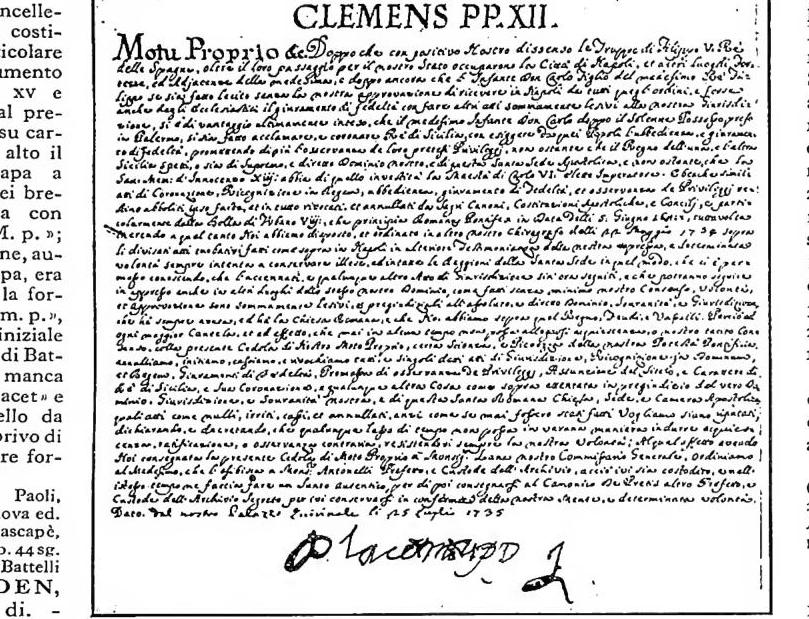 ncelle-
costi-
icolare
umento
xv e
al pre-
su car-
alto il
apa a
ei bre-
a con
M. p. »;
ne, au-
pa, era
la for-
m. p.»,
iniziale
di Bat-
manca
acet» e
ello da
rivo di
re for-
Paoli,
ova ed.
ascapè,
p. 44 sg.
Battelli
DEN,
di. -
CLEMENS PP. XII.
Motu Proprio &c Doppo che con positivo Nostro dissenso le Truppe di Filippo V. Rè
delle Spagne, oltre il loro passaggio per il nostro Stato occuparono la Città di Napoli, et altri luoghi,
ed Adjacenze della medesima, e doppo ancora che l'Infante Don Carlo Figlio del medesimo Rè
se sia fatto lecito senza la nostra approvazione di ricevere in Napoli da tutti quegli ordini, e forse
anche dagli Ecclesiastici il giuramento di fedeltà con fare altri atti sommamente lesivi alla nostra Giurisdi-
zione, si è di vantaggio ultimamente inteso, che il medesimo Infante Don Carlo doppo il solenne Possesso preso
in Palermo, si sia fatto acclamare, e coronare Rè di Sicilia, con esigere da quei Popoli Ubbedienza, e giuramen-
to di fedeltà, promettendo di più l'osservanza de loro pretesi Privileggi, non ostante che il Regno dell'una, e l'altra
Sicilia spetti, o sia di supremo, e diretto Dominio nostro, e di questa Santa Sede Apostolica, e non ostante, che la
San: Mem: d'Innocenzo XIII abbia di quello investita la Maestà di Carlo VI. eletto Imperatore. E benche simili
atti di Coronazione, Recognizione in Regem, obbedienza, giuramento di Fedeltà, et osservanza de Privileggi
aboliti ipso facto, et in tutto rivocati, et annullati da Sagri Canoni, Costituzioni Apostoliche, e Concilj, e parti-
colarmente dalla Bolla di Urbano VIII, che principia Romanus Pontifex in Data delli 5. Giugno tuttavolta
a qual conto Noi abbiamo disposto, et ordinato in altro nostro Chirografo delli Maggio 1734 sopra
li divisati atti fatti come sopra in Napoli in ulteriore Testimonianza della nostra suprema, e
volontà sempre intenta a conservare illese, ed intatte le Raggioni della Santa Sede in quel modo, che ci è per-
messo conoscendo, che l'accennati, e qualunque altro Atto di Giurisdizione sin'ora seguiti, e che potranno seguire
in appresso anche in altri luoghi dello stesso nostro Dominio, come fatti senza minimo nostro Consenso, Volontà,
et Approvazione sono sommamente lesivi, e pregiudiziali all'assoluto, e diretto Dominio, Sovranità, e Giurisdizione
che hà sempre avuta, ed hà la Chiesa Romana, e che Noi abbiamo sopra quel Regno, Feudi, e Vassalli. Perciò ad
ogni maggior Cautela, et ad effetto, che mai in alcun tempo non possa allegarsi acquiescenza, o nostro tacito Con-
senso, colla presente Cedola di Nostro Moto Proprio, certa Scienza, e Pienezza della nostra Potestà Pontificia,
annulliamo, irritiamo, cassiamo, e rivochiamo tutti, e singoli detti atti di Giurisdizione, Recognizione in Dominum,
et Regem, Giuramenti di Fedeltà, Promessa di osservanza de Privileggi, Assunzione del Titolo, e Carattere di
Rè di Sicilia, e sua Coronazione, e qualunque altra Cosa come sopra attentata in pregiudizio del vero Do-
minio, Giurisdizione, e Sovranità nostra, e di questa Santa Romana Chiesa, Sede, e Camera Apostolica,
quali atti come nulli, irriti, cassi, et annullati, anzi come se mai fossero stati fatti Vogliamo siano riputati,
dichiarando, e decretando, che qualunque lasso di tempo non possa in veruna maniera indurre acquies-
cenza, ratificazione, o osservanza contraria, resistendovi sempre la nostra volontà; Al qual effetto avendo
Noi consegnata la presente Cedola di Moto Proprio à Monsig.r nostro Commissario Generale, Ordiniamo
al Medesimo, che l'esibisca a Mons.r Antonelli Prefetto, e Custode dell'Archivio, acciò ivi sia custodito, e nell'
istesso tempo ne faccia fare un Santo Autentico, per di poi consegnarsi al Canonico De Pretis altro Prefetto, e
Custode dell'Archivio Segreto per ivi conservarsi in conformità della nostra Mente, e determinata volontà.
Dato dal nostro Palazzo Quirinale li 25 Luglio 1735
Placet motu pp.o L.